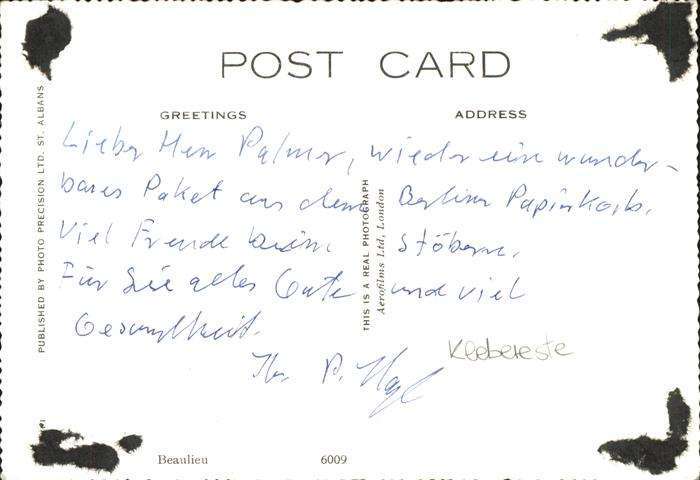 POST CARD
GREETINGS
ADDRESS
Lieber Herr Palmer, wieder ein wunder-
bares Paket aus dem Berliner Papierkorb.
Viel Freude beim Stöbern.
Für Sie alles Gute und viel
Gesundheit.
Ihr P.
Klebereste
PUBLISHED BY PHOTO PRECISION LTD. ST. ALBANS
THIS IS A REAL PHOTOGRAPH
Aerofilms Ltd, London
Beaulieu 6009